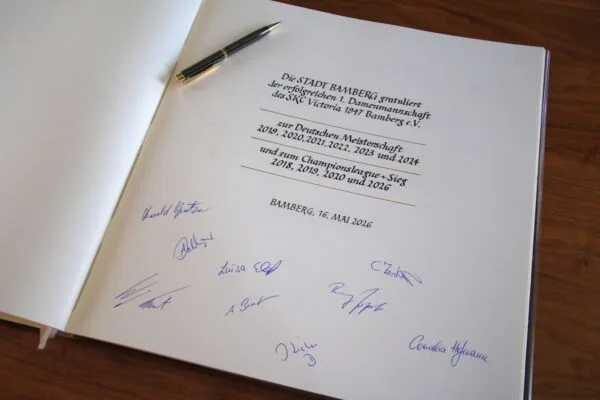 Die STADT BAMBERG gratuliert
der erfolgreichen 1. Damenmannschaft
des SKC Victoria 1947 Bamberg e.V.
zur Deutschen Meisterschaft
2019, 2020, 2021, 2022, 2023 und 2024
und zum Championsleague-Sieg
2018, 2019, 2020 und 2026
BAMBERG, 16. MAI 2026
Luisa
Cornelia Hofmann